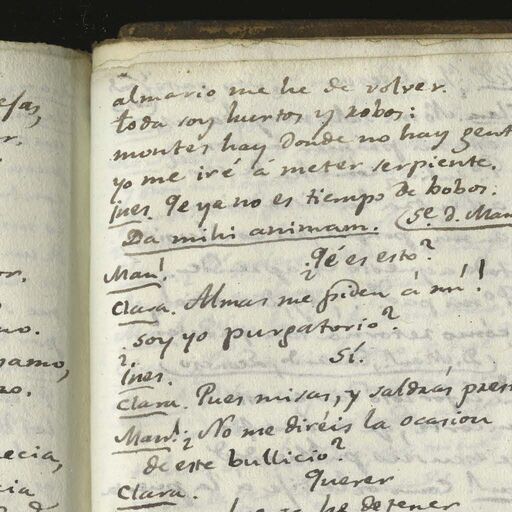 esas,
r.
or.
mo.
gamo,
zo.
ecia,
cia
almario me he de volver.
toda soy hurtos y robos:
montes hay donde no hay gent
yo me iré á meter serpiente.
Ines. Qe ya no es tiempo de bobos.
Da mihi animam. (Se. D. Man
Manl. ¿Qé es esto?
Clara. Almas me piden á mí!
¿soy yo purgatorio?
Ines. Sí.
Clara. Pues misas, y saldrás pres
Manl. ¿No me diréis la ocasion
de este bullicio?
Clara. Querer
he detener